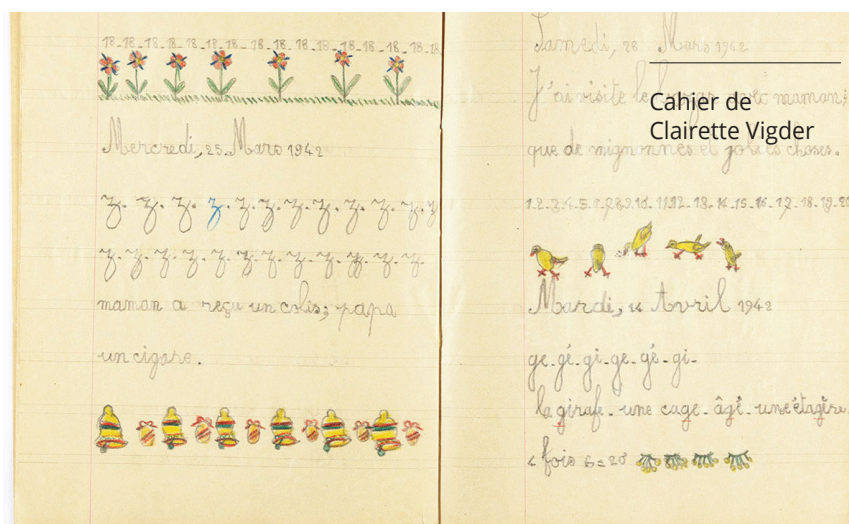 18-18-18-18-18-18-18-18-18-18-18-18-18-18-18-18
Mercredi, 25 Mars 1942
z. z. z. z. z. z. z. z. z. z. z. z.
z. z. z. z. z. z. z. z. z. z. z. z.
maman a reçu un colis; papa
un cigare.
Samedi, 28 Mars 1942
J'ai visité le avec maman;
que de mignonnes et jolies choses.
1.2.3.4.5.6.7.8.9.10.11.12.13.14.15.16.17.18.19.20
Mardi, 14 Avril 1942
ge. gé. gi. ge. gé. gi.
la girafe. une cage. âgé. une étagère.
fois 5=20
Cahier de
Clairette Vigder